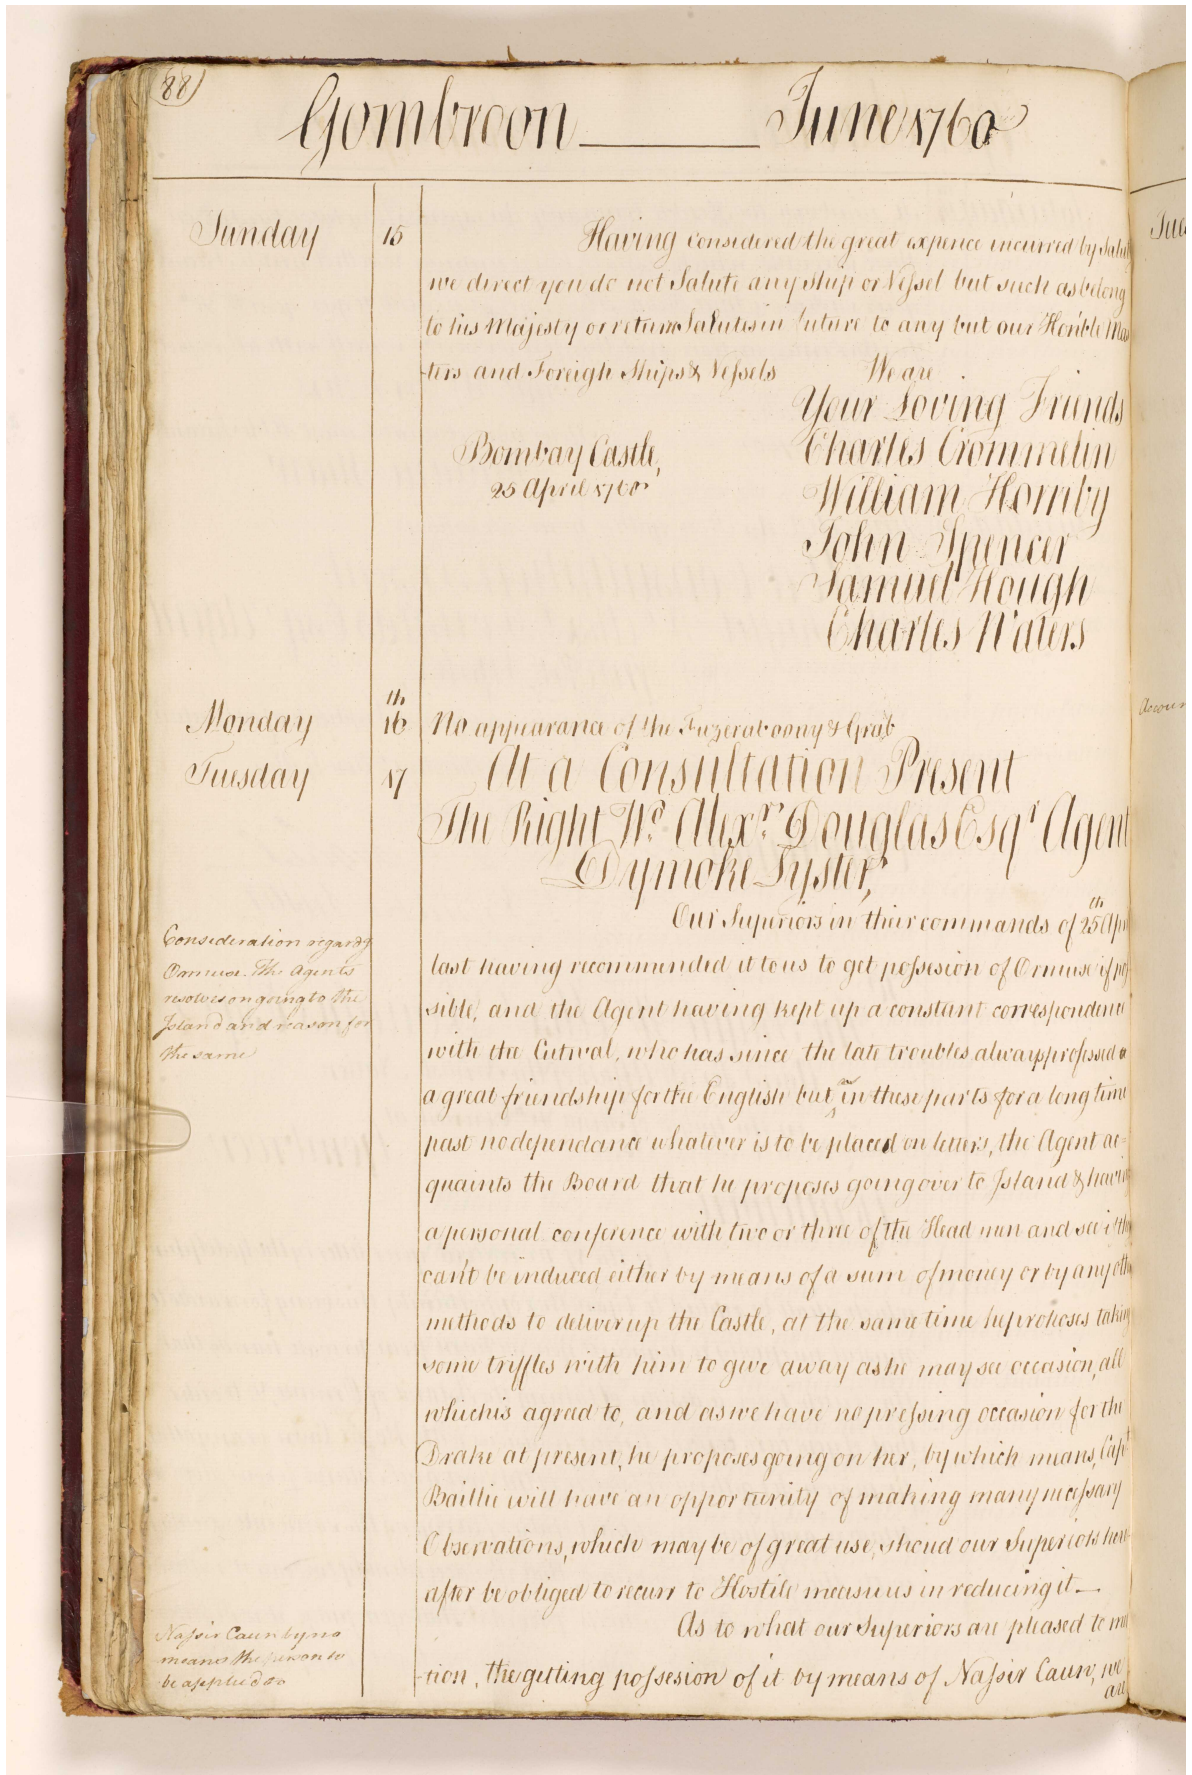 88
Gombroon June 1760
Sunday 15 Having considered the great expence incurred by Salut
we direct you do not Salute any Ship or Vessel but such as belong
to his Majesty or return Salutes in future to any but our Hon'ble Mas
ters and Foreigh Ships & Vessels We are
Your Loving Friends
Bombay Castle, Charles Crommelin
25 April 1760 William Hornby
John Spencer
Samuel Hough
Charles Waters
Monday 16th No appearance of the Fuzeraboony & Grab
Tuesday 17 At a Consultation Present
The Right Wo. Alexr. Douglas Esqr Agent
Dymoke Lyster,
Our Superiors in their commands of 25th Apr
Consideration regardg
Ormuse. The Agents
resolves on going to the
Island and reason for
the same
last having recommended it to us to get possesion of Ormuse if pos
sible, and the Agent having kept up a constant correspondence
with the Cutwal, who has since the late troubles always professed a
a great friendship for the English but as in these parts for a long time
past no dependance whatever is to be placed on letters, the Agent ac=
quaints the Board that he proposes going over to Island & having
a personal conference with two or three of the Head men and see if they
can't be induced either by means of a sum of money or by any other
methods to deliver up the Castle, at the same time he proposes taking
some triffles with him to give away as he may see occasion, all
which is agred to, and as we have no pressing occasion for the
Drake at present, he proposes going on her, by which means, Capt
Baillie will have an opportunity of making many necessary
Observations, which may be of great use, shoud our Superiors here
after be obliged to recurr to Hostile measures in reducing it.
As to what our Superiors are pleased to me
Nassir Caun by no
means the person to
be applied to
tion, the getting possesion of it by means of Nassir Caun, we
are